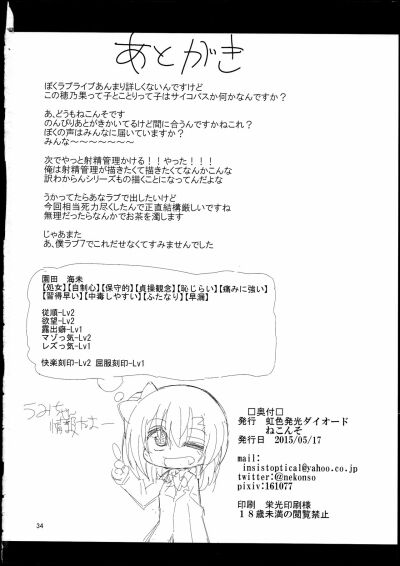 あとがき
ぼくラブライブあんまり詳しくないんですけど
この穂乃果って子とことりって子はサイコパスか何かなんですか？
あ、どうもねこんそです
のんびりあとがきかいてるけど間に合うんですかねこれ？
ぼくの声はみんなに届いていますか？
みんな～～～～～～～
次でやっと射精管理かける！！やった！！！
俺は射精管理が描きたくて描きたくてなんかこんな
訳わからんシリーズもの描くことになってんだよな
うかってたらあなラブで出したいけど
今回相当死力尽くしたんで正直結構厳しいですね
無理だったらなんかでお茶を濁します
じゃあまた
あ、僕ラブ7でこれだせなくてすみませんでした
園田　海未
【処女】【自制心】【保守的】【貞操観念】【恥じらい】【痛みに強い】
【習得早い】【中毒しやすい】【ふたなり】【早漏】
従順-Lv2
欲望-Lv2
露出癖-Lv1
マゾっ気-Lv2
レズっ気-Lv1
快楽刻印-Lv2 屈服刻印-Lv1
うみちゃん
情報だよー
□奥付□
発行　虹色発光ダイオード
ねこんそ
発行日　2015/05/17
mail:
insistoptical@yahoo.co.jp
twitter:@nekonso
pixiv:161077
印刷　栄光印刷様
１８歳未満の閲覧禁止
34